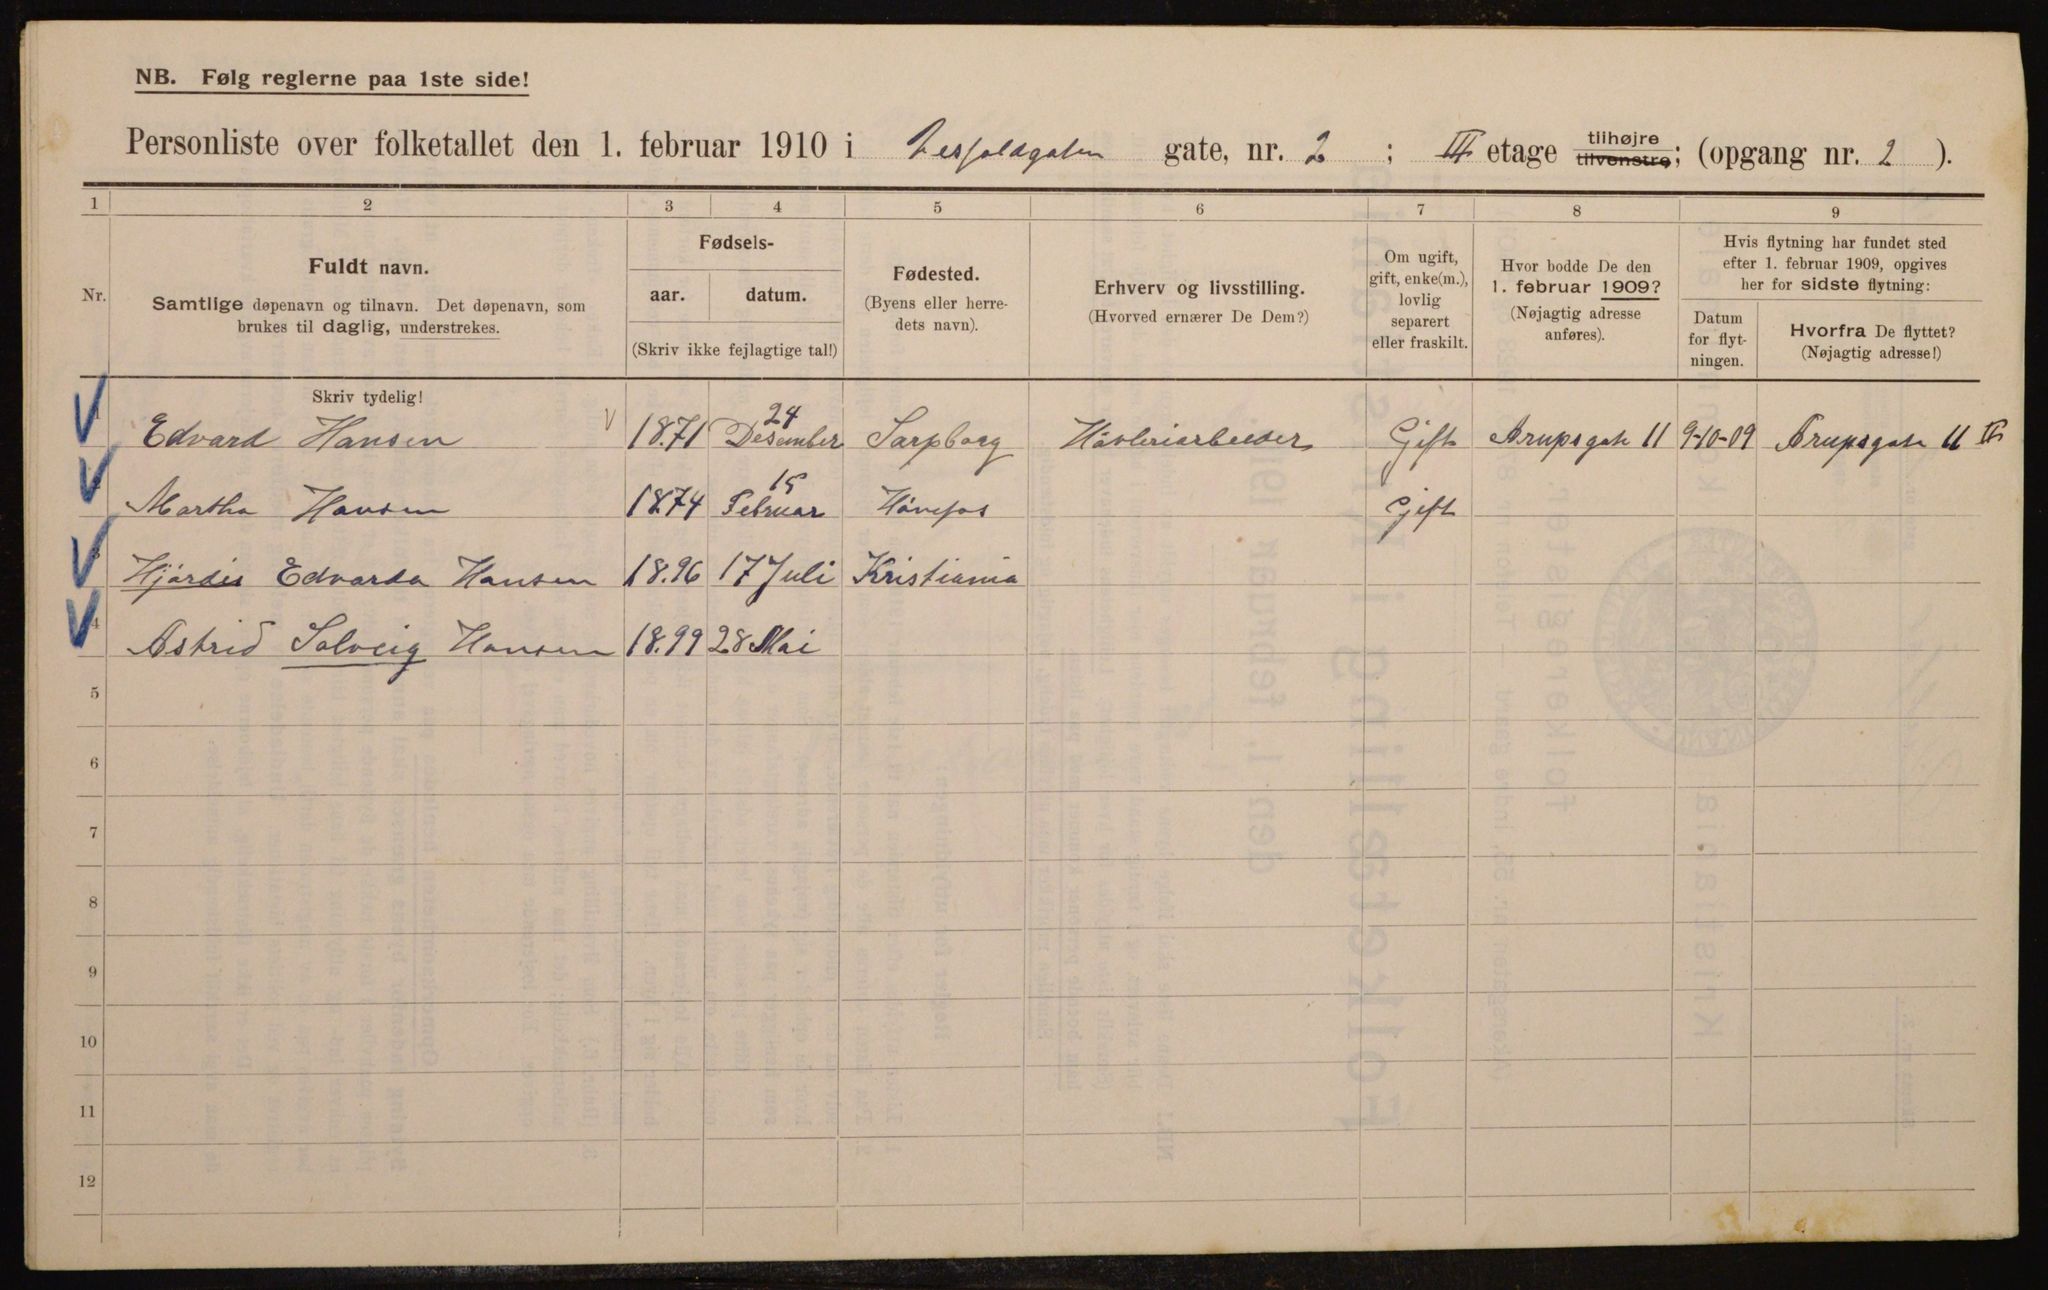 NB. Følg reglerne paa 1ste side!
Personliste over folketallet den 1. februar 1910 i Vesfoldgaten gate, nr. 2 ; III etage tilhøjre tilvenstre; (opgang nr. 2 ).
1 2 3 4 5 6 7 8 9
Nr.
Fuldt navn.
Samtlige døpenavn og tilnavn. Det døpenavn, som
brukes til daglig, understrekes.
Fødsels-
aar. datum.
(Skriv ikke fejlagtige tal!)
Fødested.
(Byens eller herre-
dets navn).
Erhverv og livsstilling.
(Hvorved ernærer De Dem?)
Om ugift,
gift, enke(m.),
lovlig
separert
eller fraskilt.
Hvor bodde De den
1. februar 1909?
(Nøjagtig adresse
anføres).
Hvis flytning har fundet sted
efter 1. februar 1909, opgives
her for sidste flytning:
Datum
for flyt-
ningen.
Hvorfra De flyttet?
(Nøjagtig adresse!)
Skriv tydelig!
1 Edvard Hansen 1871 24 Desember Sarpborg Høvleriarbeider Gift Arupsgate 11 9-10-09 Arupsgate 11 III
Martha Hansen 1874 15 Februar Hönefos Gift
3 Hjördis Edvarda Hansen 1896 17 Juli Kristiania
4 Astrid Solveig Hansen 1899 28 Mai
5
6
7
8
9
10
11
12